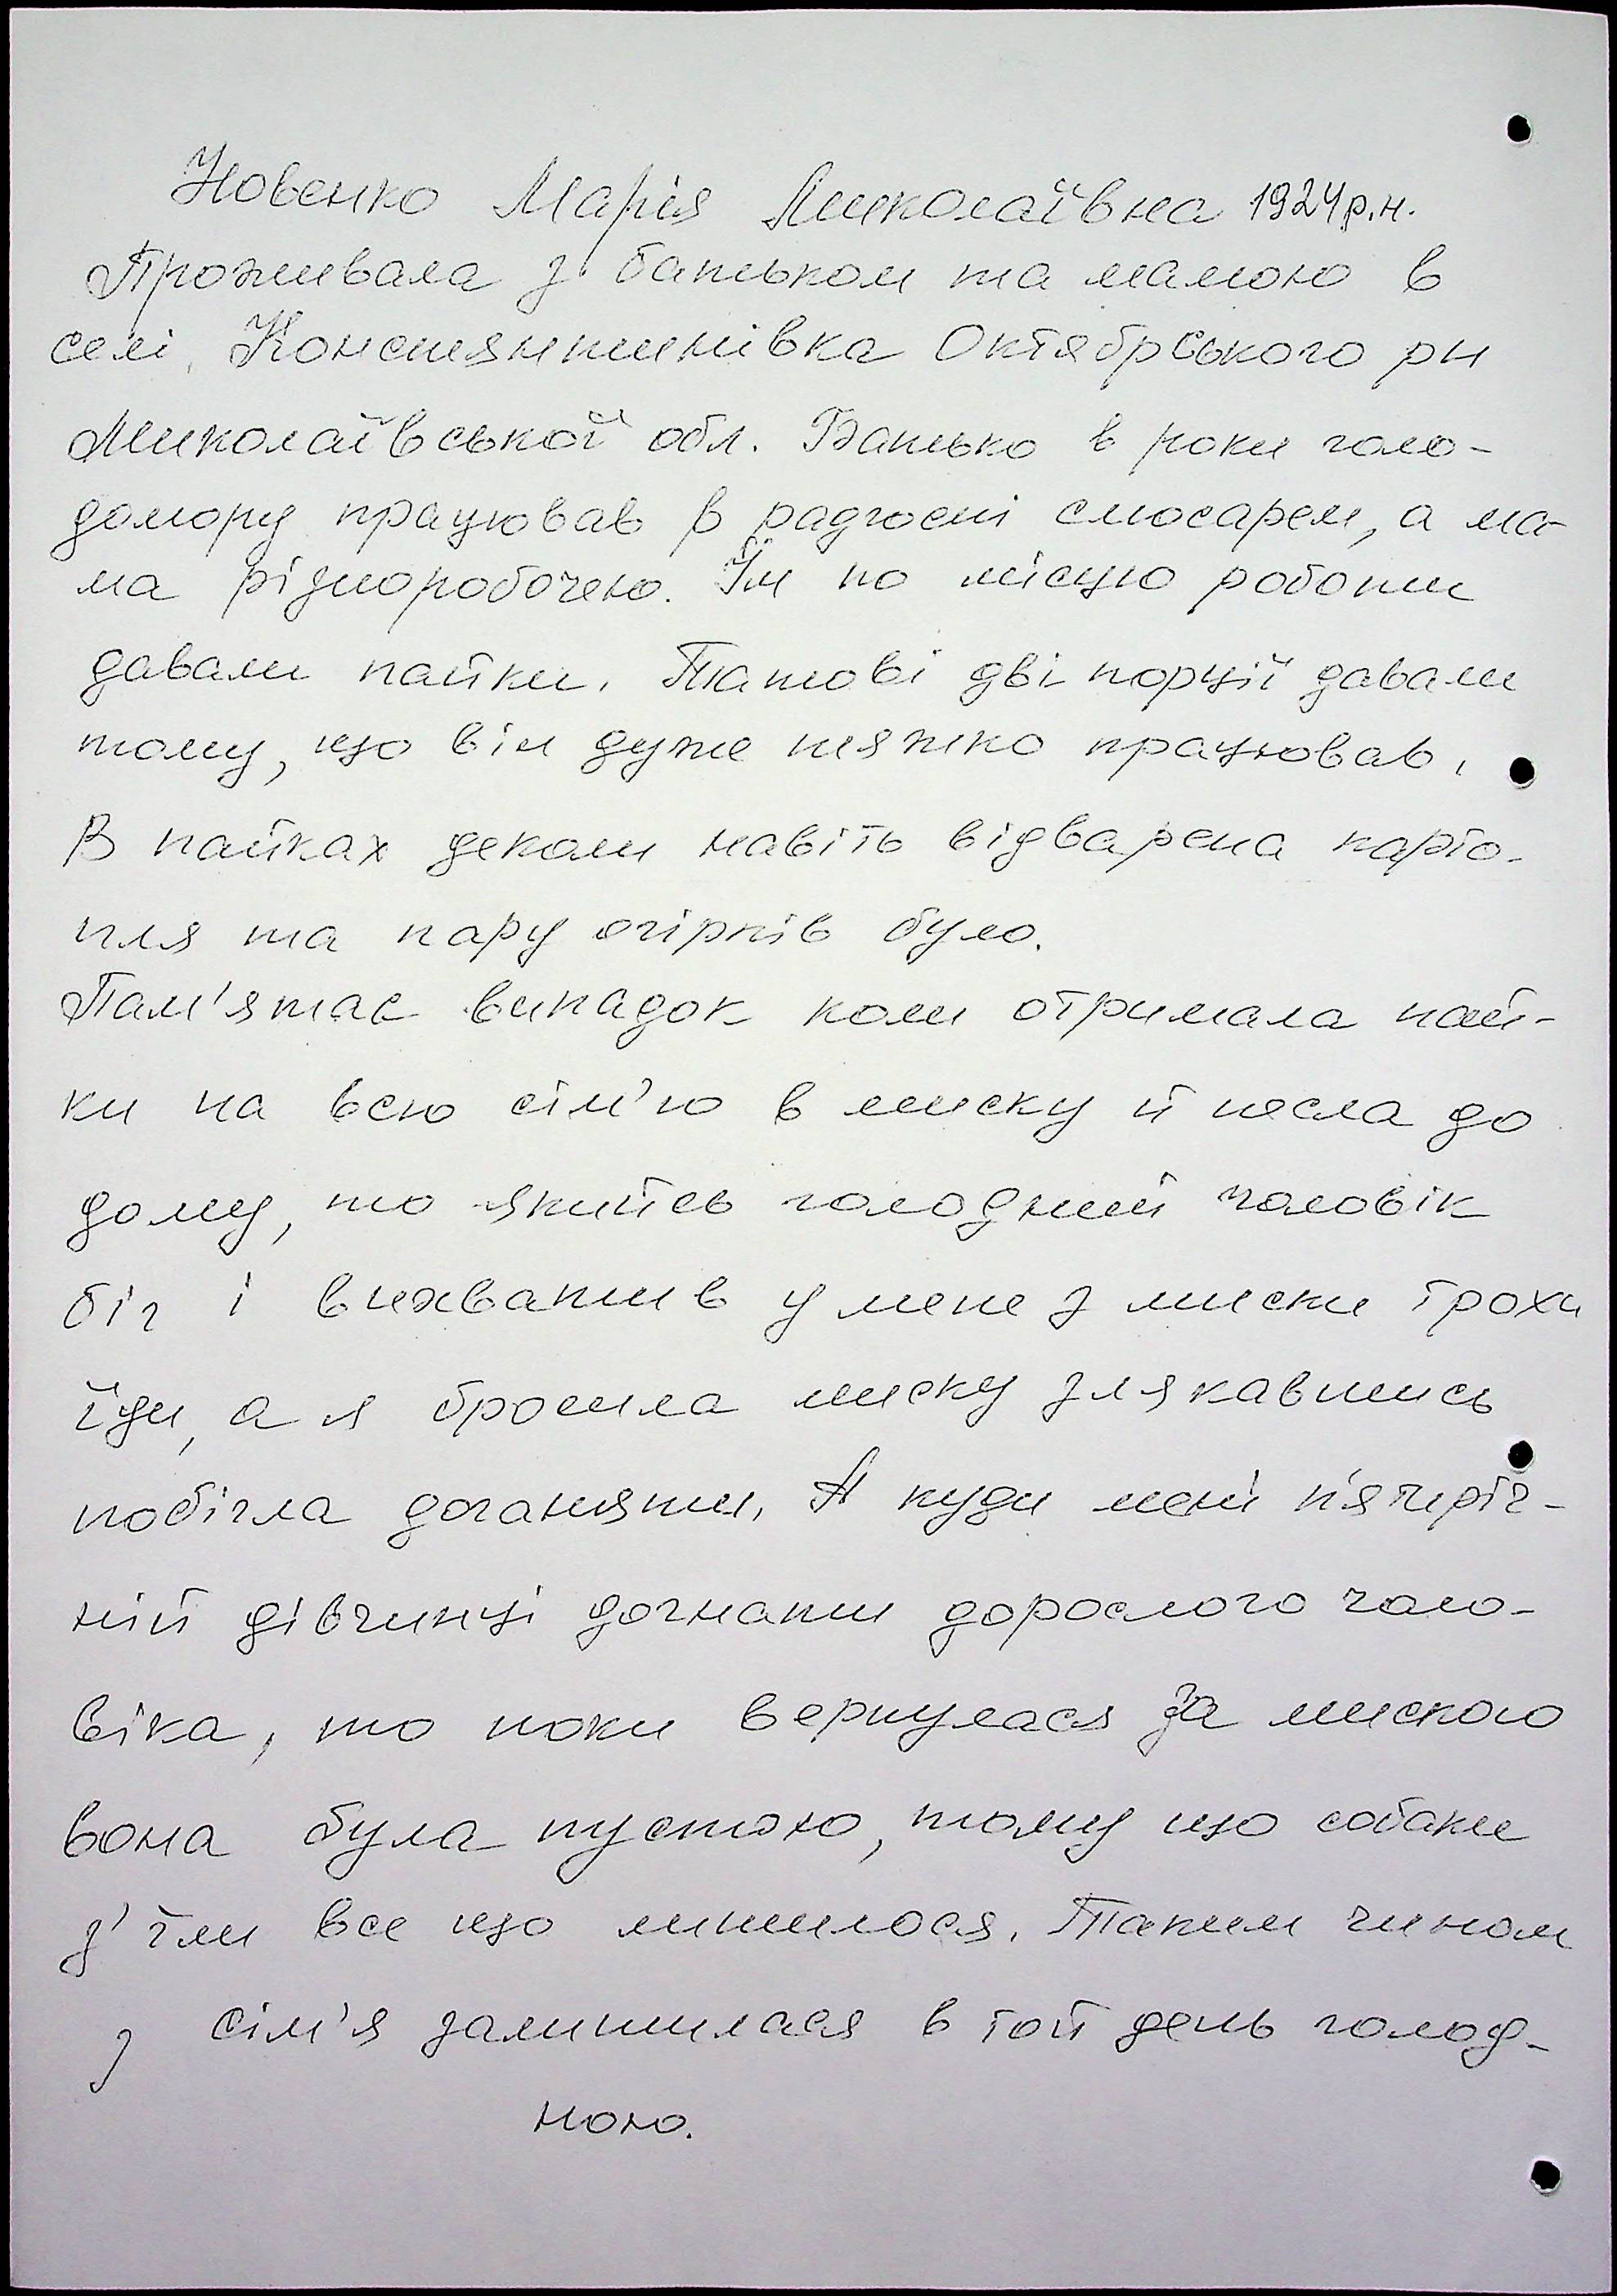 Новенко Марія Миколаївна 1924р.н.
Проживала з батьком та мамою в
селі, Констянтинівка Октябрського рн
Миколаївської обл. Батько в роки голо-
домору працював в радгоспі слюсарем, а ма-
ма різноробочею. Їм по місцю роботи
давали пайки. Татові дві порції давали
тому, що він дуже тяжко працював.
В пайках деколи навіть відварена карто-
пля та пару огірків було.
Пам'ятає випадок коли отримала пай-
ки на всю сім'ю в миску й несла до
дому, то якийсь голодний чоловік
біг і вихватив у мене з миски трохи
їди, а я бросила миску злякавшись
побігла доганяти. А куди мені п'ятиріч-
ній дівчинці догнати дорослого чоло-
віка, то поки вернулася за мискою
вона була пустою, тому що собаки
з'їли все що лишилося. Таким чином
з сім'я залишилася в той день голод-
ною.